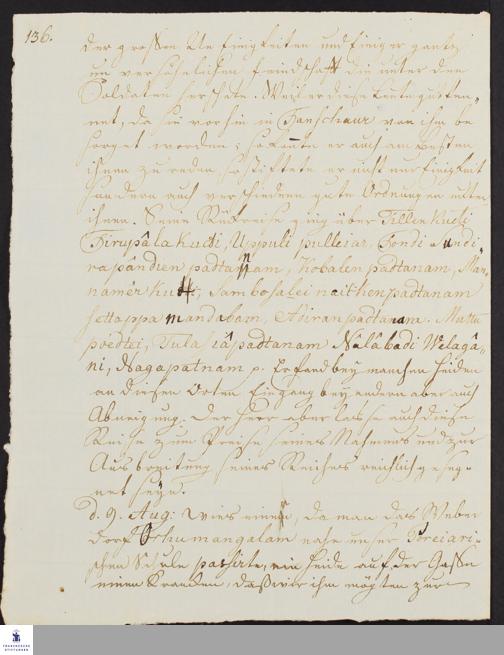 136.
der grossen Uneinigkeiten und einiger gantz
unversöhnlichen feindschafft die unter den
Soldaten herschete. Weil er diese Leute gut
net, da sie vorhin in Tanschaur von ihm be
sorget worden; so konte er auch am besten
ihnen zu reden, so stiftete er nicht nur Einigkeit
sondern auch verschiedene gute Ordnungen unter
ihnen. Seine Rükreise ging über Tillenkudi
Tirupâlakudi, Uppuli pulleiar, Tondi
rapândien padtanam, Kobalen padtanam, Man
namér Kudi, Sambosalei naithen padtanam
settappa mandabam, Adiran padtanam. Muttu
poedtei, Tulasiâpadtanam Nalâbadi Welagâ-
ni, Nagapatnam p. Er fand bey manchen Heiden
an diesen Orten Eingang bey andern aber auch
Abneigung. Der Herr aber lasse auch diese
Reise zum Preise seines Nahmens und zur
Ausbreitung seines Reiches reichlich geseg-
net seyn.
d. 9. Aug: wies einer, da man das Weber
Dorf Orhumangalam nahe unser Poreiari-
schen Schule passirte, ein Heide auf der Gasse
einen Kranken, daß wir ihm mögten zur
FRANCKESCHE
STIFTUNGEN